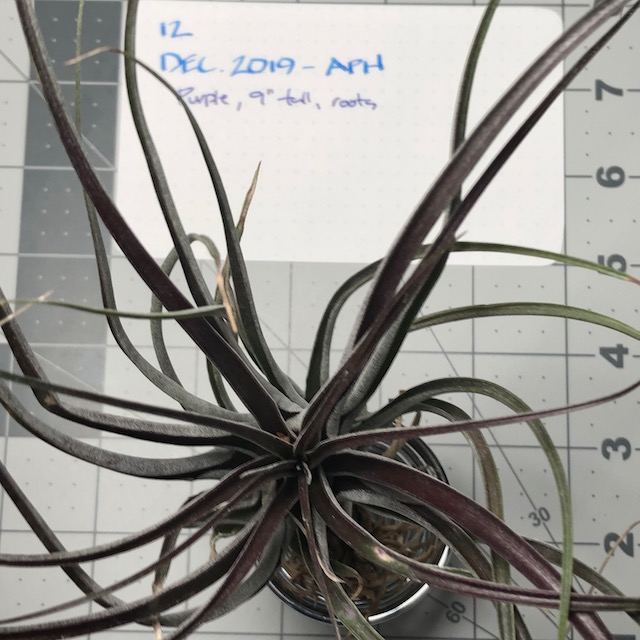 12
DEC. 2019 - APH
Purple, 9" tall, roots
7
6
5
4
3
2
30
60